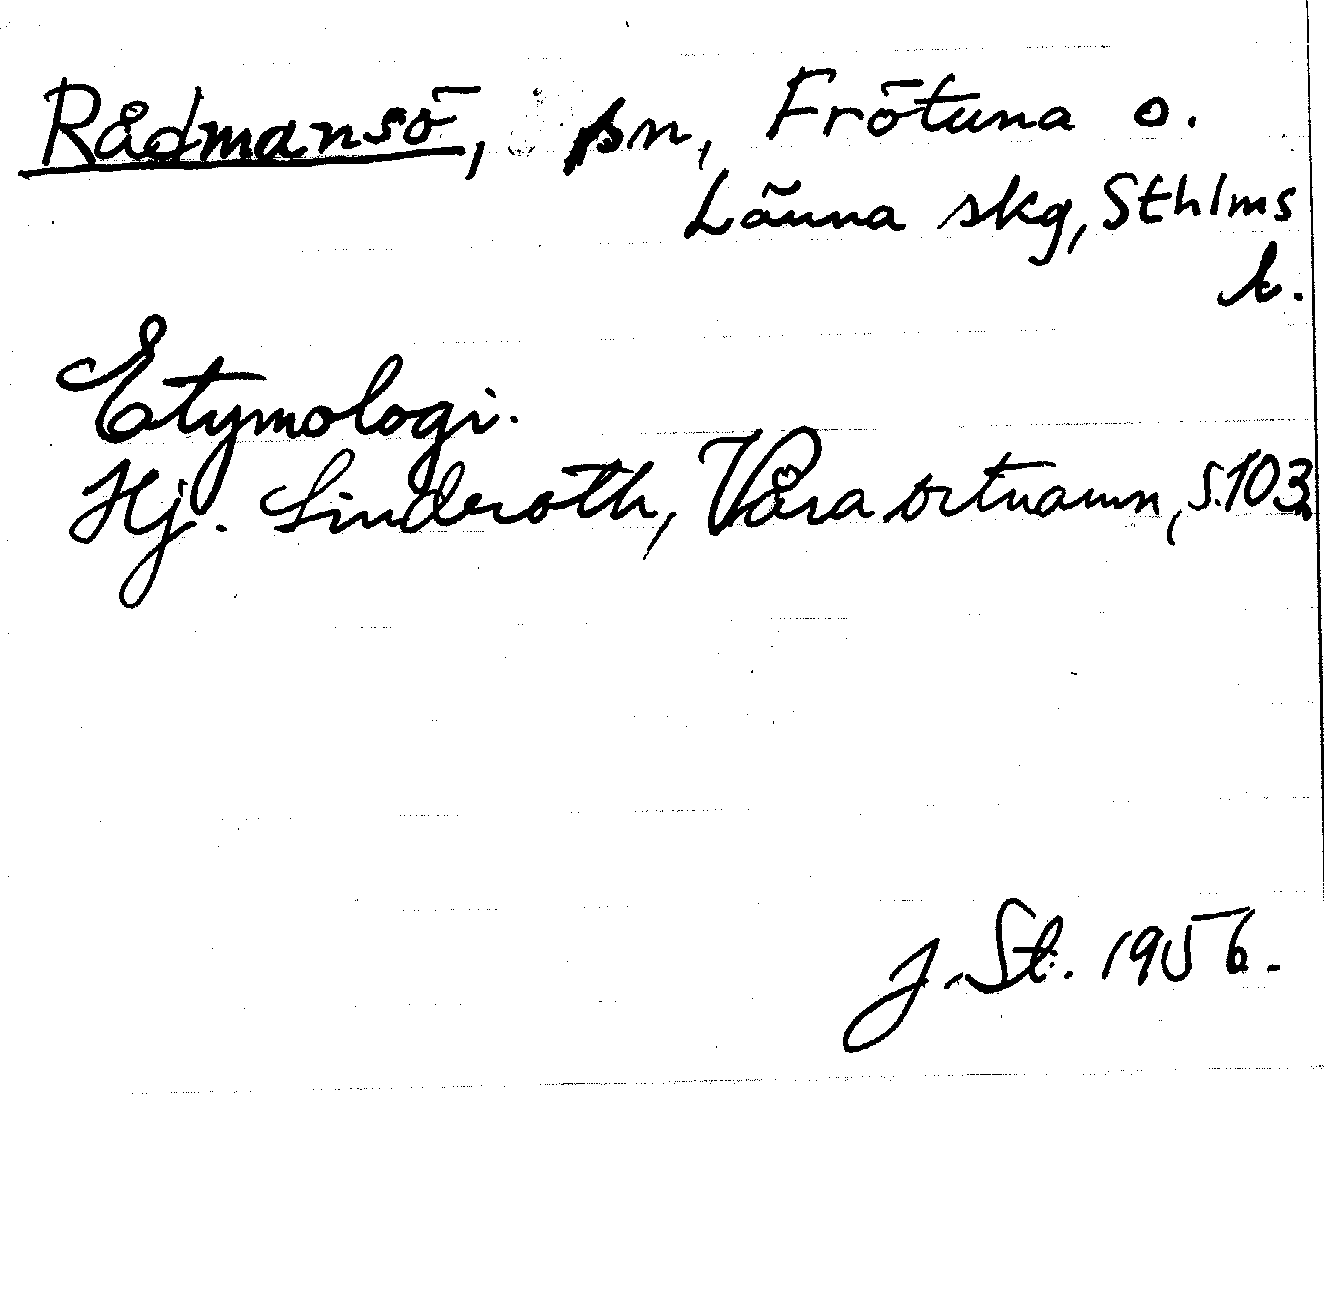 Rådmansö, sn, Frötuna o.
Länna skg, Sthlms
l.
Etymologi.
Hj. Linderoth, Våra ortnamn, s. 103
J. St. 1956.